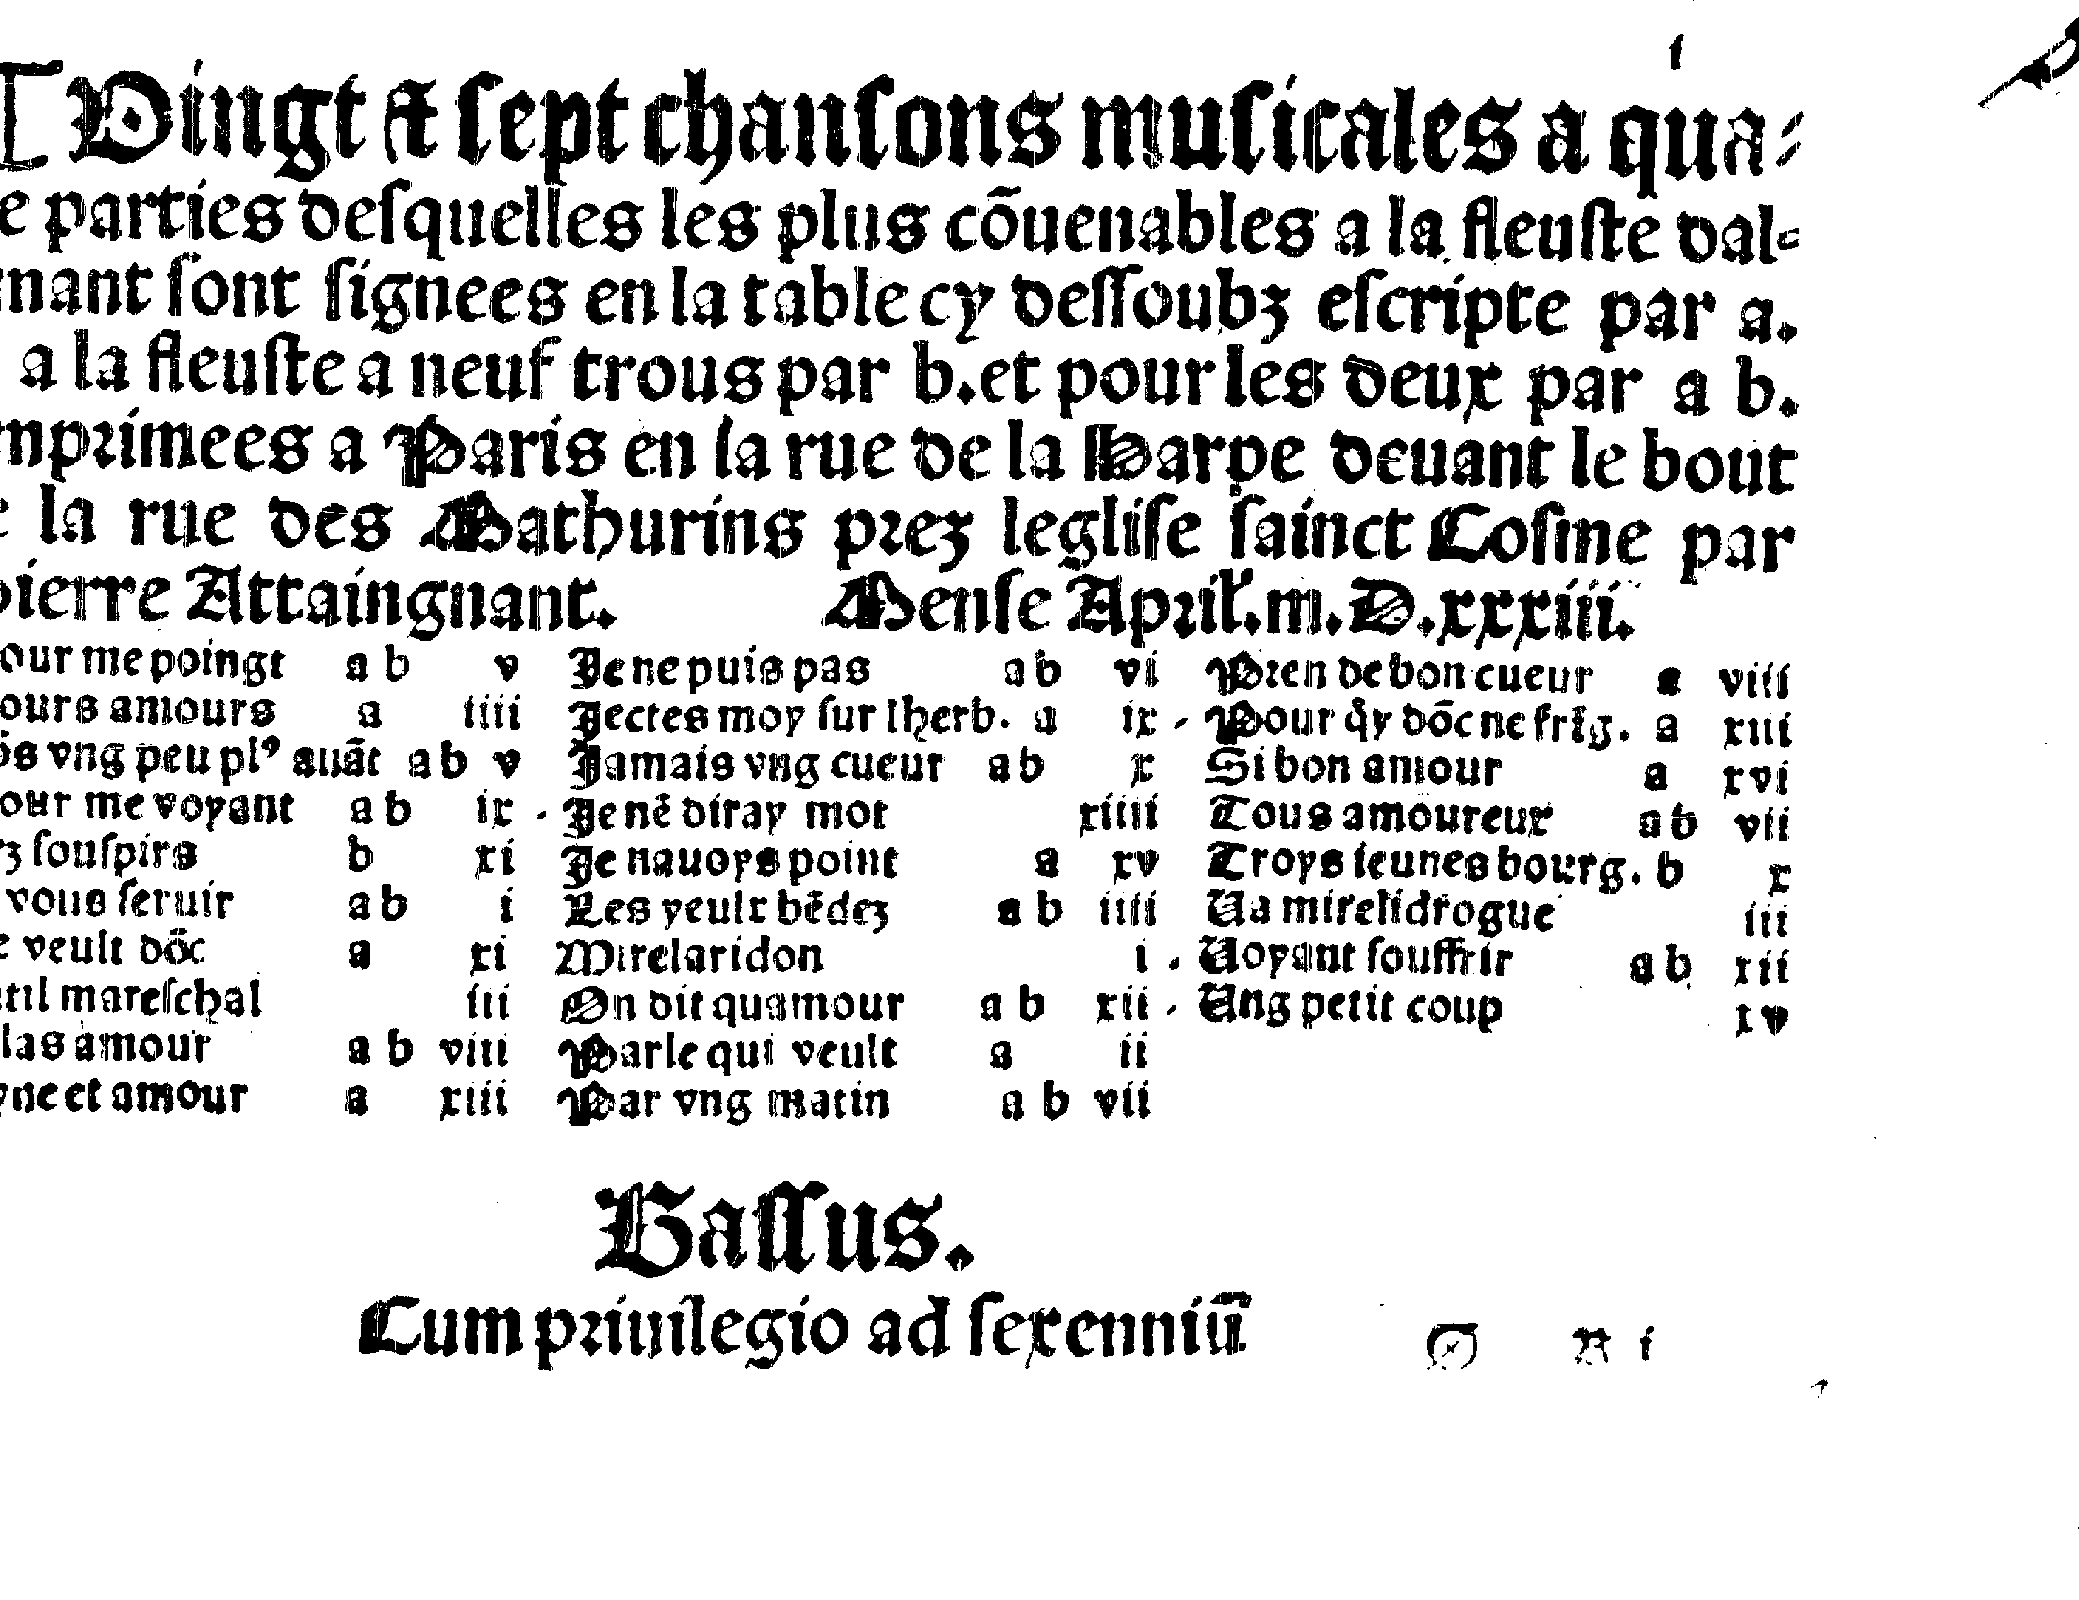 Vingt et sept chansons musicales a qua-
e parties desquelles les plus cōuenables a la fleuste dal-
nant sont signees en la table cy dessoubz escripte par a.
a la fleuste a neuf trous par b. et pour les deux par a b.
mprimees a Paris en la rue de la Harpe deuant le bout
e la rue des Mathurins prez leglise sainct Cosme par
pierre Attaingnant. Mense April. m. D. xxxiii.
our me poingt a b v
ours amours a iiii
ōs vng peu plꝰ auāt a b v
our me voyant a b ix
z souspirs b xi
vous seruir a b i
e veult dōc a xi
til mareschal iii
las amour a b viii
yne et amour a xiii
Je ne puis pas a b vi
Jectes moy sur lherb. a ix
Jamais vng cueur a b x
Je nē diray mot xiiii
Je nauoys point a xv
Les yeulx bēdez a b iiii
Mirelaridon i
On dit quamour a b xii
Parle qui veult a ii
Par vng matin a b vii
Pren de bon cueur a viii
Pour q̄y dōc ne frig. a xiii
Si bon amour a xvi
Tous amoureux a b vii
Troys ieunes bourg. b x
Va mirelidrogue iii
Voyant souffrir a b xii
Vng petit coup xv
Bassus.
Cum priuilegio ad sexenniū